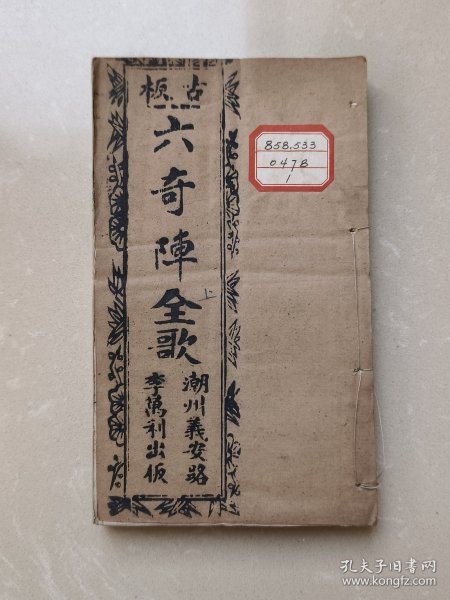 古板
六奇陣全歌
上
潮州義安路
李萬利出版
858.533
047B
1
孔夫子旧书网
www.kongfz.com